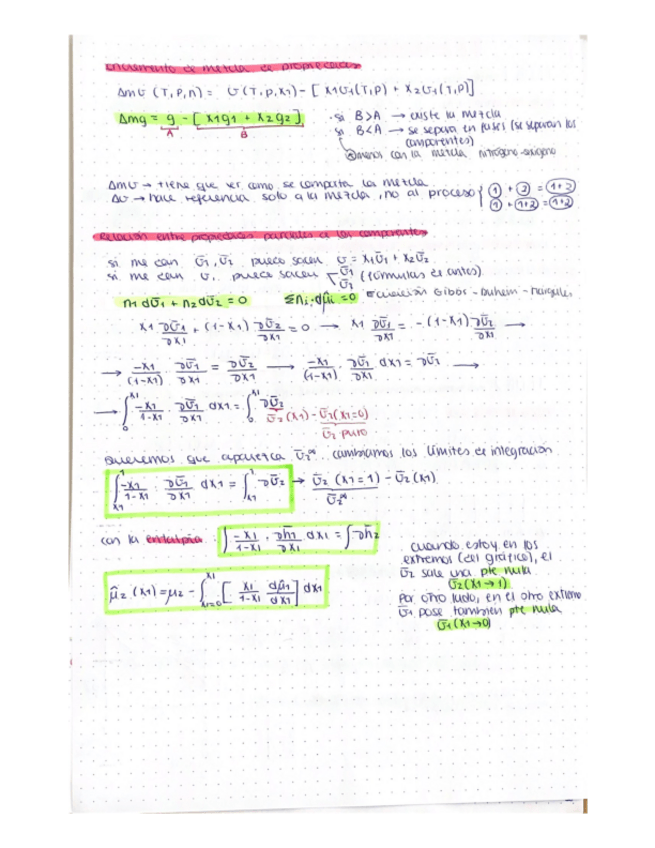 incremento de mezcla de propiedades
Δmv (T,P,n) = v(T,P,x1) - [x1v1(T,P) + x2v1(T,P)]
Δmg = g - [x1g1 + x2g2]
A B
· si B>A → existe la mezcla
· si B<A → se separa en fases (se separan los componentes)
menos con la mezcla nitrógeno-oxígeno
Δmv → tiene que ver como se comporta la mezcla
Δv → hace referencia solo a la mezcla, no al proceso { ① + ② = (1+2)
① + (1+2) = (1+2)
Relación entre propiedades parciales de los componentes
si me dan v̄1, v̄2 puedo sacar v = x1v̄1 + x2v̄2
si me dan v, puedo sacar v̄1 v̄2 (fórmulas de antes)
n1 dv̄1 + n2 dv̄2 = 0 Σni·dμ̂i = 0 Ecuación Gibbs-Duhem-Margules
x1 ∂v̄1/∂x1 + (1-x1) ∂v̄2/∂x1 = 0 → x1 ∂v̄1/∂x1 = -(1-x1) ∂v̄2/∂x1 →
→ -x1/(1-x1) · ∂v̄1/∂x1 = ∂v̄2/∂x1 → -x1/(1-x1) · ∂v̄1/∂x1 dx1 = ∂v̄2 →
→ ∫₀^x1 -x1/1-x1 · ∂v̄1/∂x1 dx1 = ∫₀^x1 ∂v̄2
v̄2(x1) - v̄2(x1=0)
v̄2 puro
Queremos que aparezca v̄2^∞. cambiamos los límites de integración
∫_x1^1 -x1/1-x1 · ∂v̄1/∂x1 dx1 = ∫_x1^1 ∂v̄2 → v̄2(x1=1) - v̄2(x1)
v̄2^∞
con la entalpía: ∫ -x1/1-x1 · ∂h̄1/∂x1 dx1 = ∫∂h̄2
μ̂2(x1) = μ2 - ∫_x1=0^x1 [x1/1-x1 dμ̂1/dx1] dx1
cuando estoy en los
extremos (del gráfico), el
v̄2 sale una pte nula
v̄2(x1→1)
Por otro lado, en el otro extremo
v̄1 pose también pte nula
v̄1(x1→0)